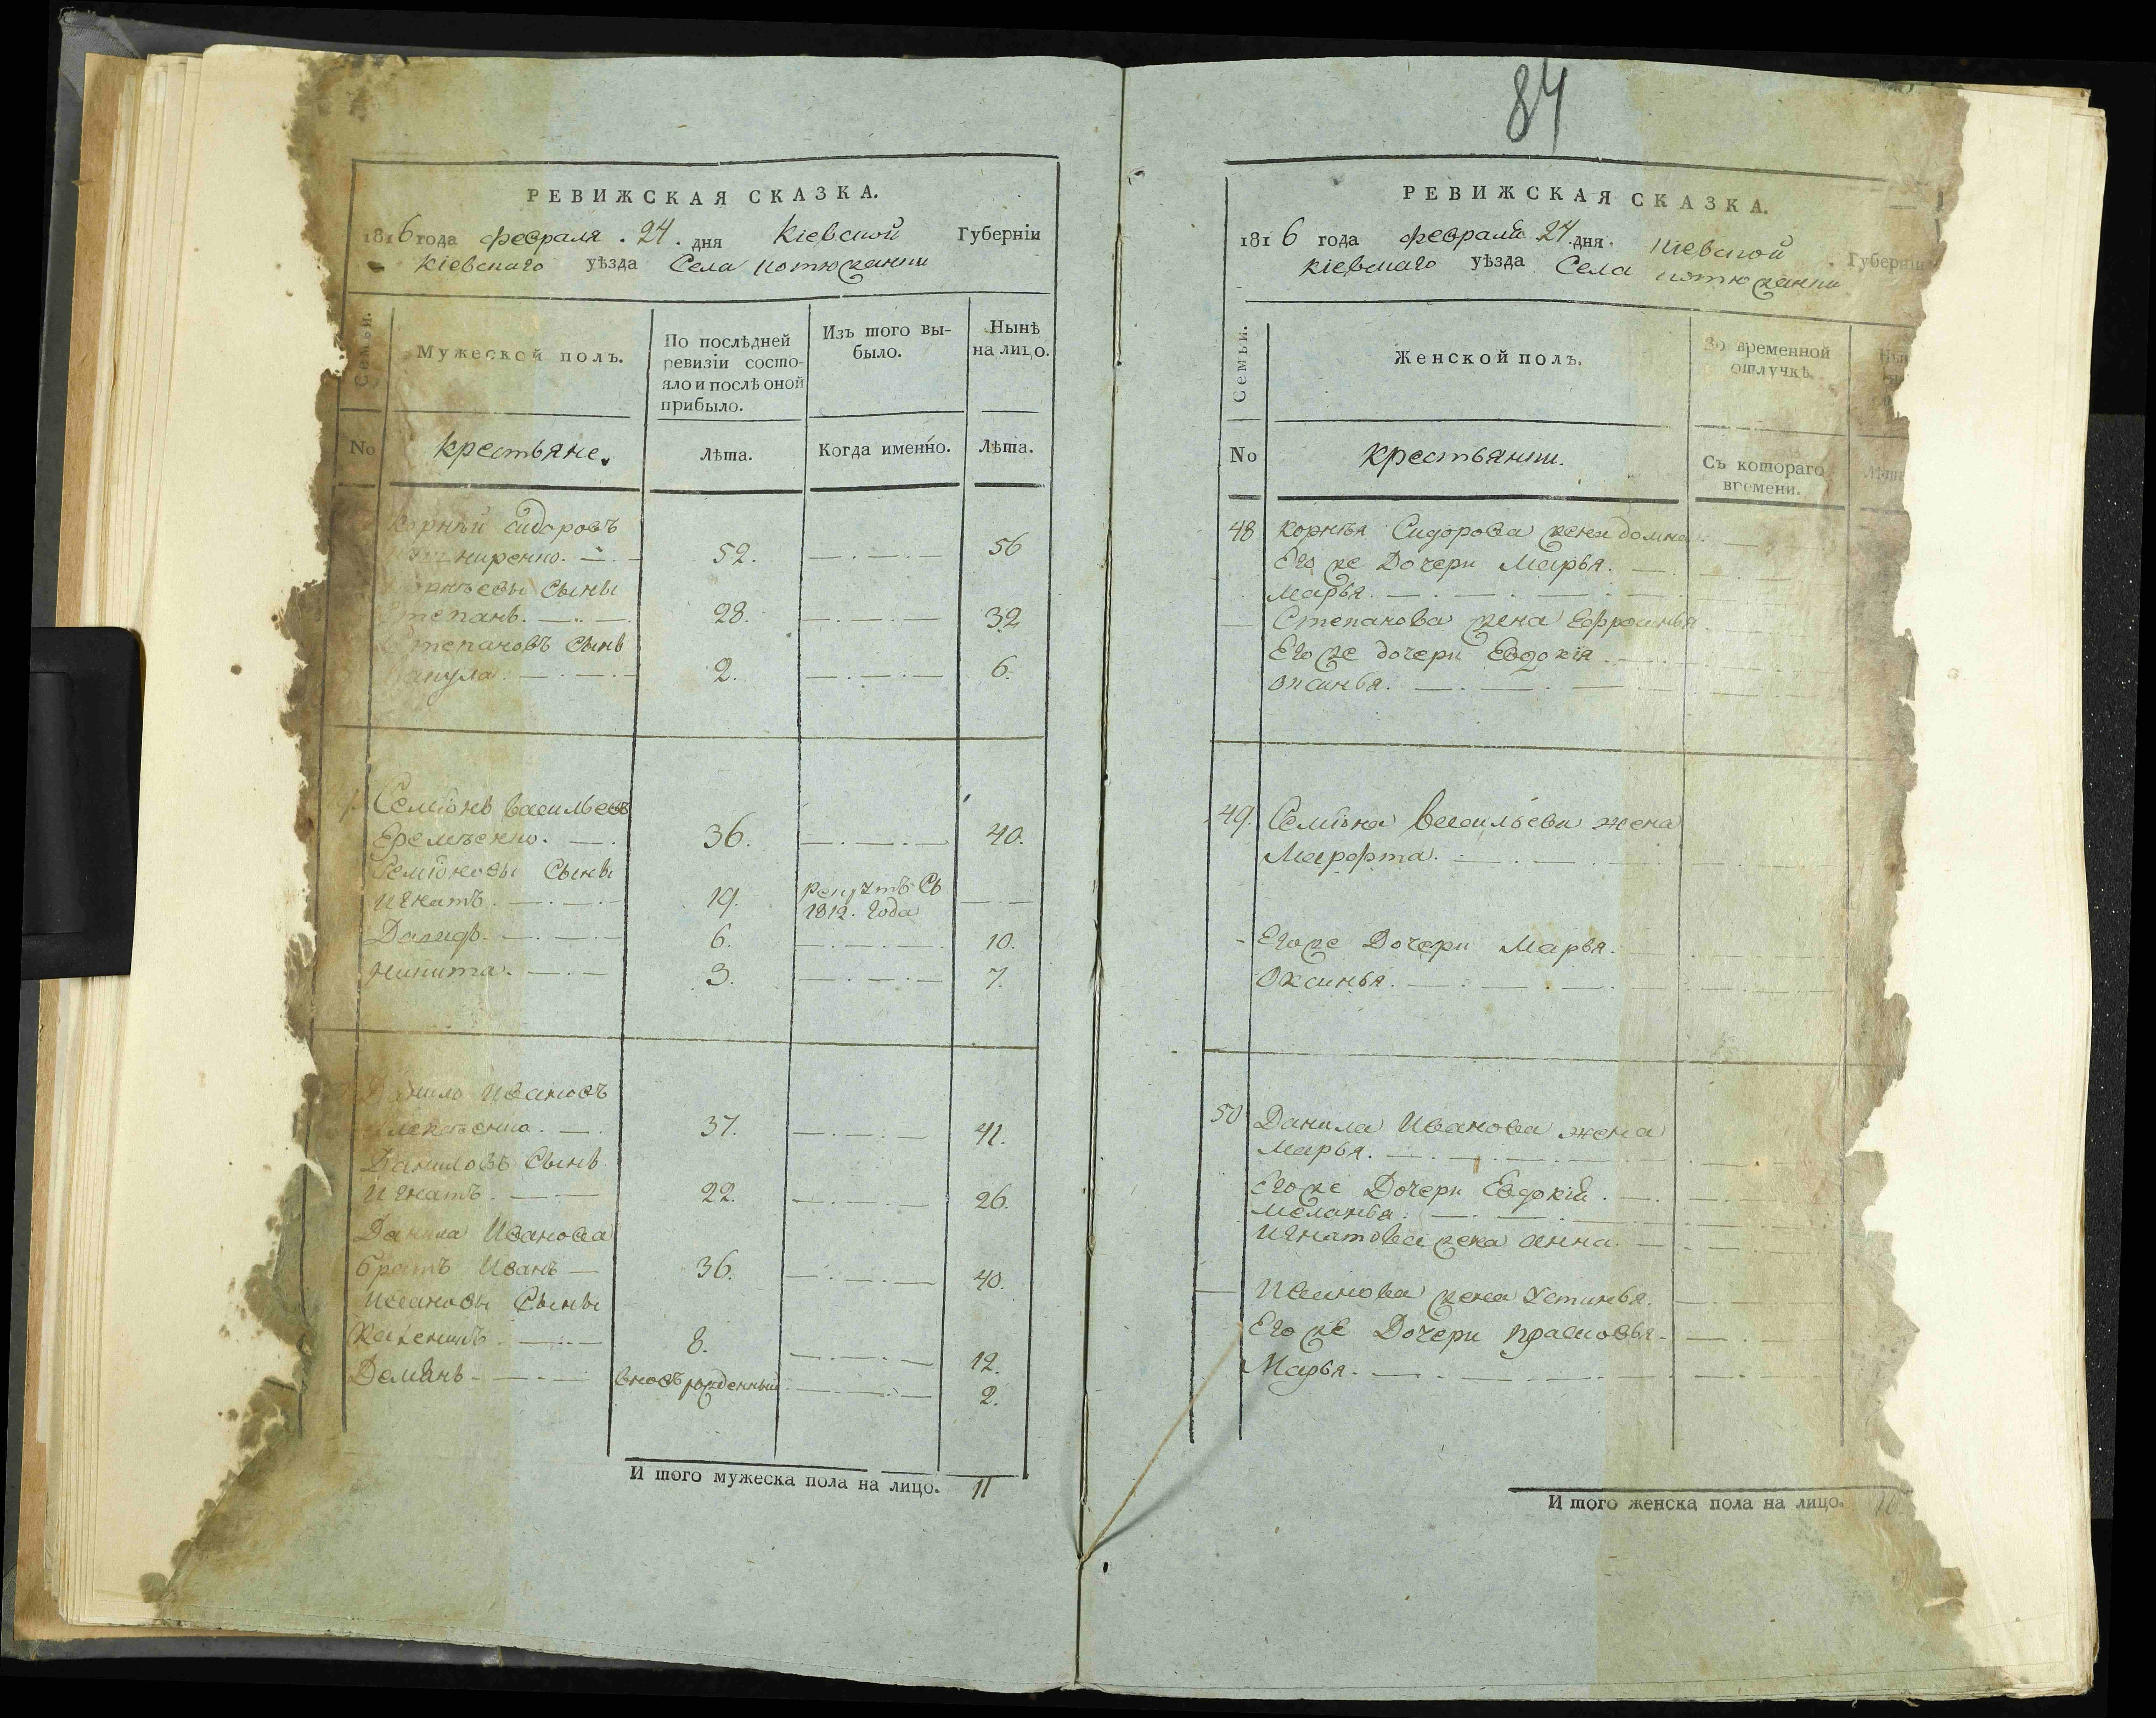 84
РЕВИЖСКАЯ СКАЗКА.
1816 года февраля 24 дня Кіевской Губерніи
Кіевскаго уѣзда Села
Семьи.
Мужеской полъ.
По послѣдней ревизіи состояло и послѣ оной прибыло.
Изъ того выбыло.
Нынѣ на лицо.
No
крестьяне.
Лѣта.
Когда именно.
Лѣта.
Корнѣй Сидоровъ
52. 56
сыны
Степанъ. 28. 32
Степановъ сынъ
2. 6.
Семіонъ Васильевъ
Еремѣенко. 36. 40.
Семіоновы Сыны
Игнатъ. 19. рекрутъ Съ 1812. года
Давидъ. 6. 10.
Никита. 3. 7.
Данило Ивановъ
37. 41.
Даниловъ Сынъ
Игнатъ. 22. 26.
Данила Иванова
братъ Иванъ 36. 40.
Ивановы Сыны
8. 12.
Демянъ вновърожденный 2.
И того мужеска пола на лицо. 11
РЕВИЖСКАЯ СКАЗКА.
1816 года февраля 24 дня Кіевской Губерніи
Кіевскаго уѣзда Села
Семьи.
Женской полъ.
Во временной отлучкѣ.
No
крестьянки.
Съ котораго времени.
48 Корнѣя Сидорова жена домна
Его же Дочери Марья.
Марья.
Степанова жена Ефросинья
Его же дочери Евдокія
Оксинья.
49. Семіона Васильева жена
Марфта.
Его же Дочери Марья.
Оксинья.
50 Данила Иванова жена
Марья.
Его же Дочери Евдокія.
Меланья.
Игнатова жена Анна.
Иванова жена Устинья.
Его же Дочери Прасковья
Марья.
И того женска пола на лицо. 16